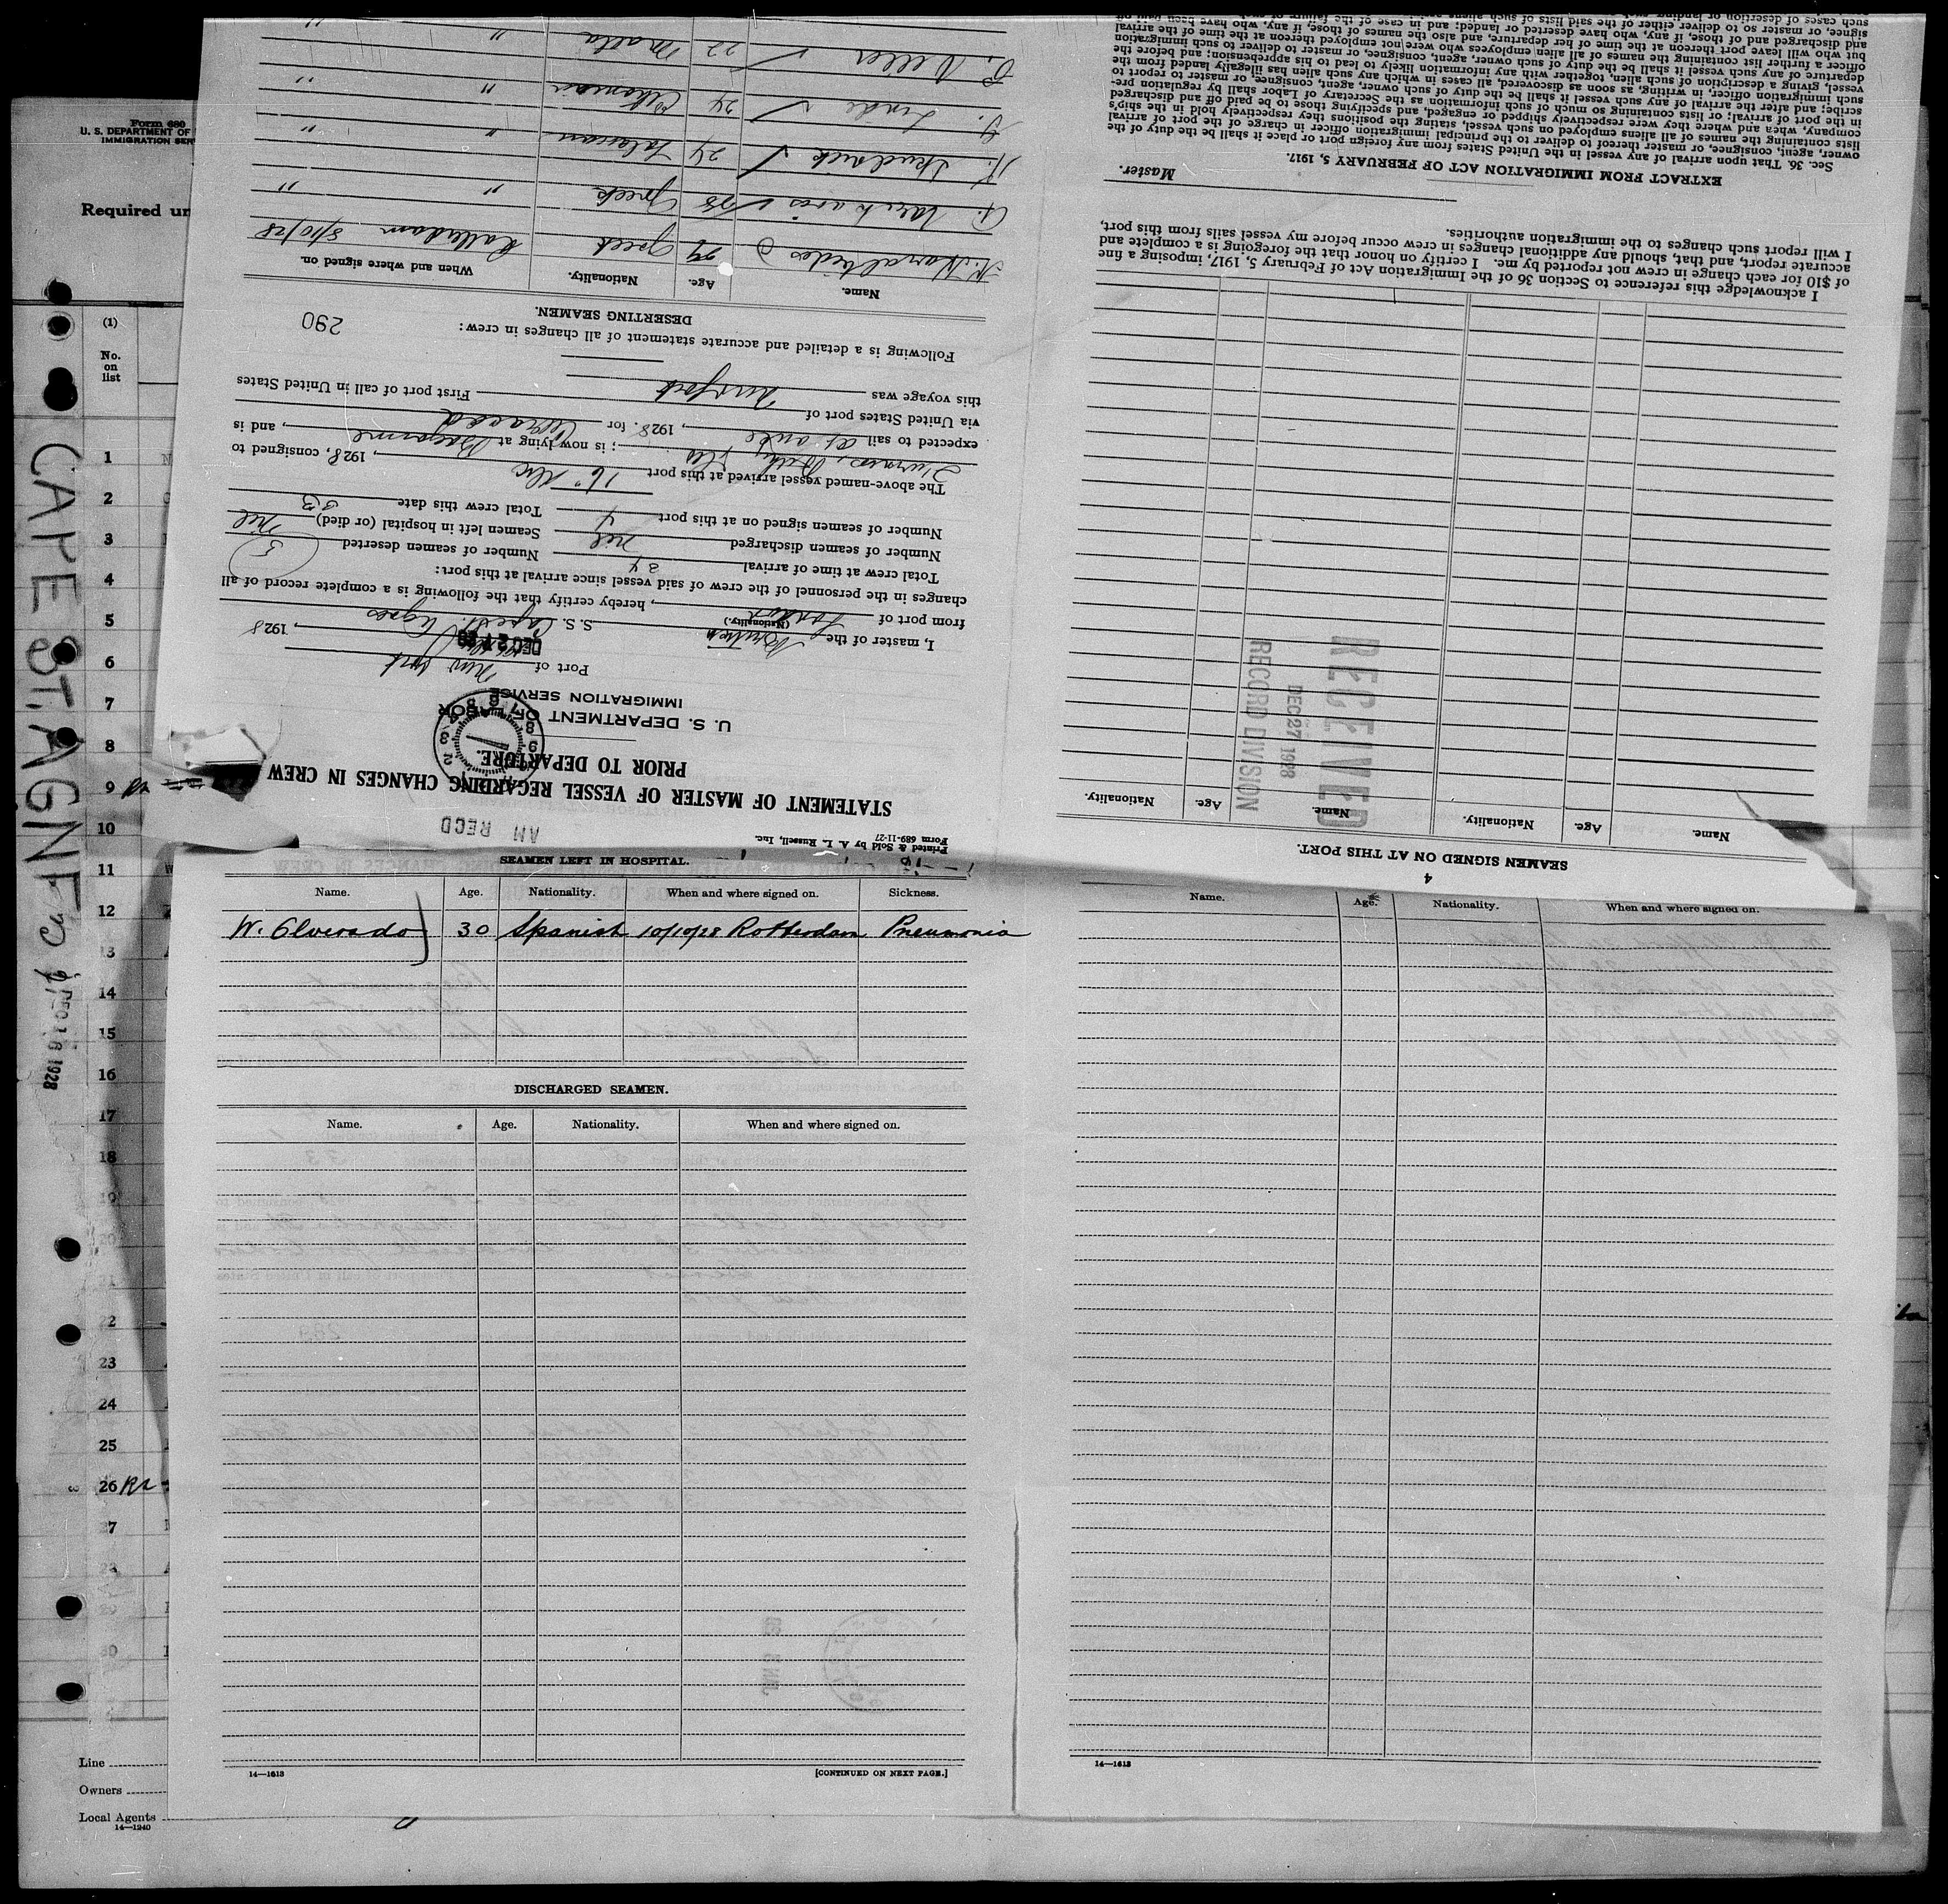 Form 680
U. S. DEPARTMENT OF
IMMIGRATION SER
Required un
(1)
No.
on
list
1
2
3
4
5
6
7
8
9
10
11
12
13
14
15
16
17
18
19
20
21
22
23
24
25
26
27
28
29
30
Line
Owners
Local Agents
14—1240
CAPE ST. AGNES
DEC 16 1928
Printed & Sold by A. L. Russell, Inc.
Form 689-11-27
AM RECD
STATEMENT OF MASTER OF VESSEL REGARDING CHANGES IN CREW
PRIOR TO DEPARTURE.
U. S. DEPARTMENT OF LABOR
IMMIGRATION SERVICE
Port of New York
, 1928
I, master of the British S. S. Cape St. Agnes
(Nationality.)
from port of London, hereby certify that the following is a complete record of all
changes in the personnel of the crew of said vessel since arrival at this port:
Total crew at time of arrival 34 Number of seamen deserted 5
Number of seamen discharged nil Seamen left in hospital (or died) nil
Number of seamen signed on at this port 4 Total crew this date 33
The above-named vessel arrived at this port 16 Dec, 1928, consigned to
Furness, Withy & Co; is now lying at Bayonne, and is
expected to sail, 1928. for
via United States port of
this voyage was New York First port of call in United States
Following is a detailed and accurate statement of all changes in crew:
290
DESERTING SEAMEN.
Name. Age. Nationality. When and where signed on.
Greek Rotterdam 8/10/28
28 Greek " "
24 " "
24 "
22 Malta " "
SEAMEN SIGNED ON AT THIS PORT.
4
Name. Age. Nationality. Name. Age. Nationality.
RECEIVED
DEC 27 1928
RECORD DIVISION
I acknowledge this reference to Section 36 of the Immigration Act of February 5, 1917, imposing a fine
of $10 for each change in crew not reported by me. I certify on honor that the foregoing is a complete and
accurate report, and that, should any additional changes in crew occur before my vessel sails from this port,
I will report such changes to the immigration authorities.
Master.
EXTRACT FROM IMMIGRATION ACT OF FEBRUARY 5, 1917.
Sec. 36. That upon arrival of any vessel in the United States from any foreign port or place it shall be the duty of the
owner, agent, consignee, or master thereof to deliver to the principal immigration officer in charge of the port of arrival
lists containing the names of all aliens employed on such vessel, stating the positions they respectively hold in the ship's
company, when and where they were respectively shipped or engaged, and specifying those to be paid off and discharged
in the port of arrival; or lists containing so much of such information as the Secretary of Labor shall by regulation pre-
scribe; and after the arrival of any such vessel it shall be the duty of such owner, agent, consignee, or master to report to
such immigration officer, in writing, as soon as discovered, all cases in which any such alien has illegally landed from the
vessel, giving a description of such alien, together with any information likely to lead to his apprehension; and before the
departure of any such vessel it shall be the duty of such owner, agent, consignee, or master to deliver to such immigration
officer a further list containing the names of all alien employees who were not employed thereon at the time of the arrival
but who will leave port thereon at the time of her departure, and also the names of those, if any, who have been paid off
and discharged and of those, if any, who have deserted or landed; and in case of the failure of
signee, or master so to deliver either of the said lists of such aliens
such cases of desertion or landing
SEAMEN LEFT IN HOSPITAL.
Name. Age. Nationality. When and where signed on. Sickness.
W. Alverado 30 Spanish 10/10/28 Rotterdam Pneumonia
DISCHARGED SEAMEN.
Name. Age. Nationality. When and where signed on.
14—1613
[CONTINUED ON NEXT PAGE.]
Name. Age. Nationality. When and where signed on.
14—1613